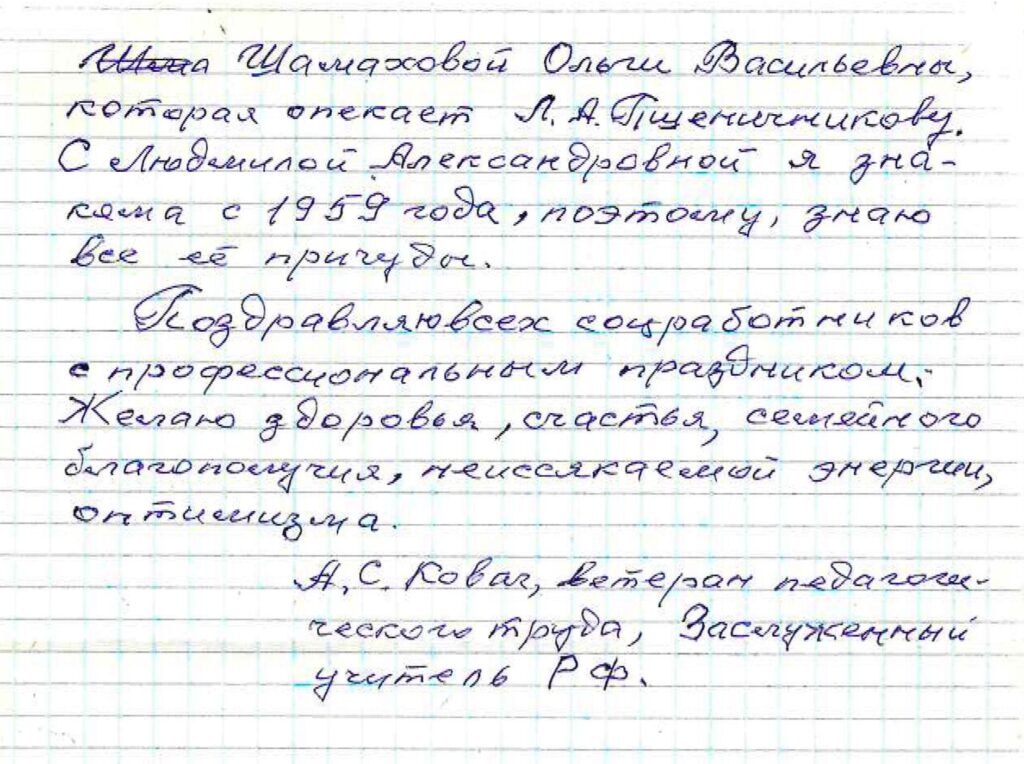 Шамаховой Ольги Васильевны,
которая опекает Л.А. Пшеничникову.
С Людмилой Александровной я зна-
кома с 1959 года, поэтому, знаю
все её причуды.
Поздравляю всех соцработников
с профессиональным праздником.
Желаю здоровья, счастья, семейного
благополучия, неиссякаемой энергии,
оптимизма.
А.С. Ковач, ветеран педагоги-
ческого труда, Заслуженный
учитель РФ.